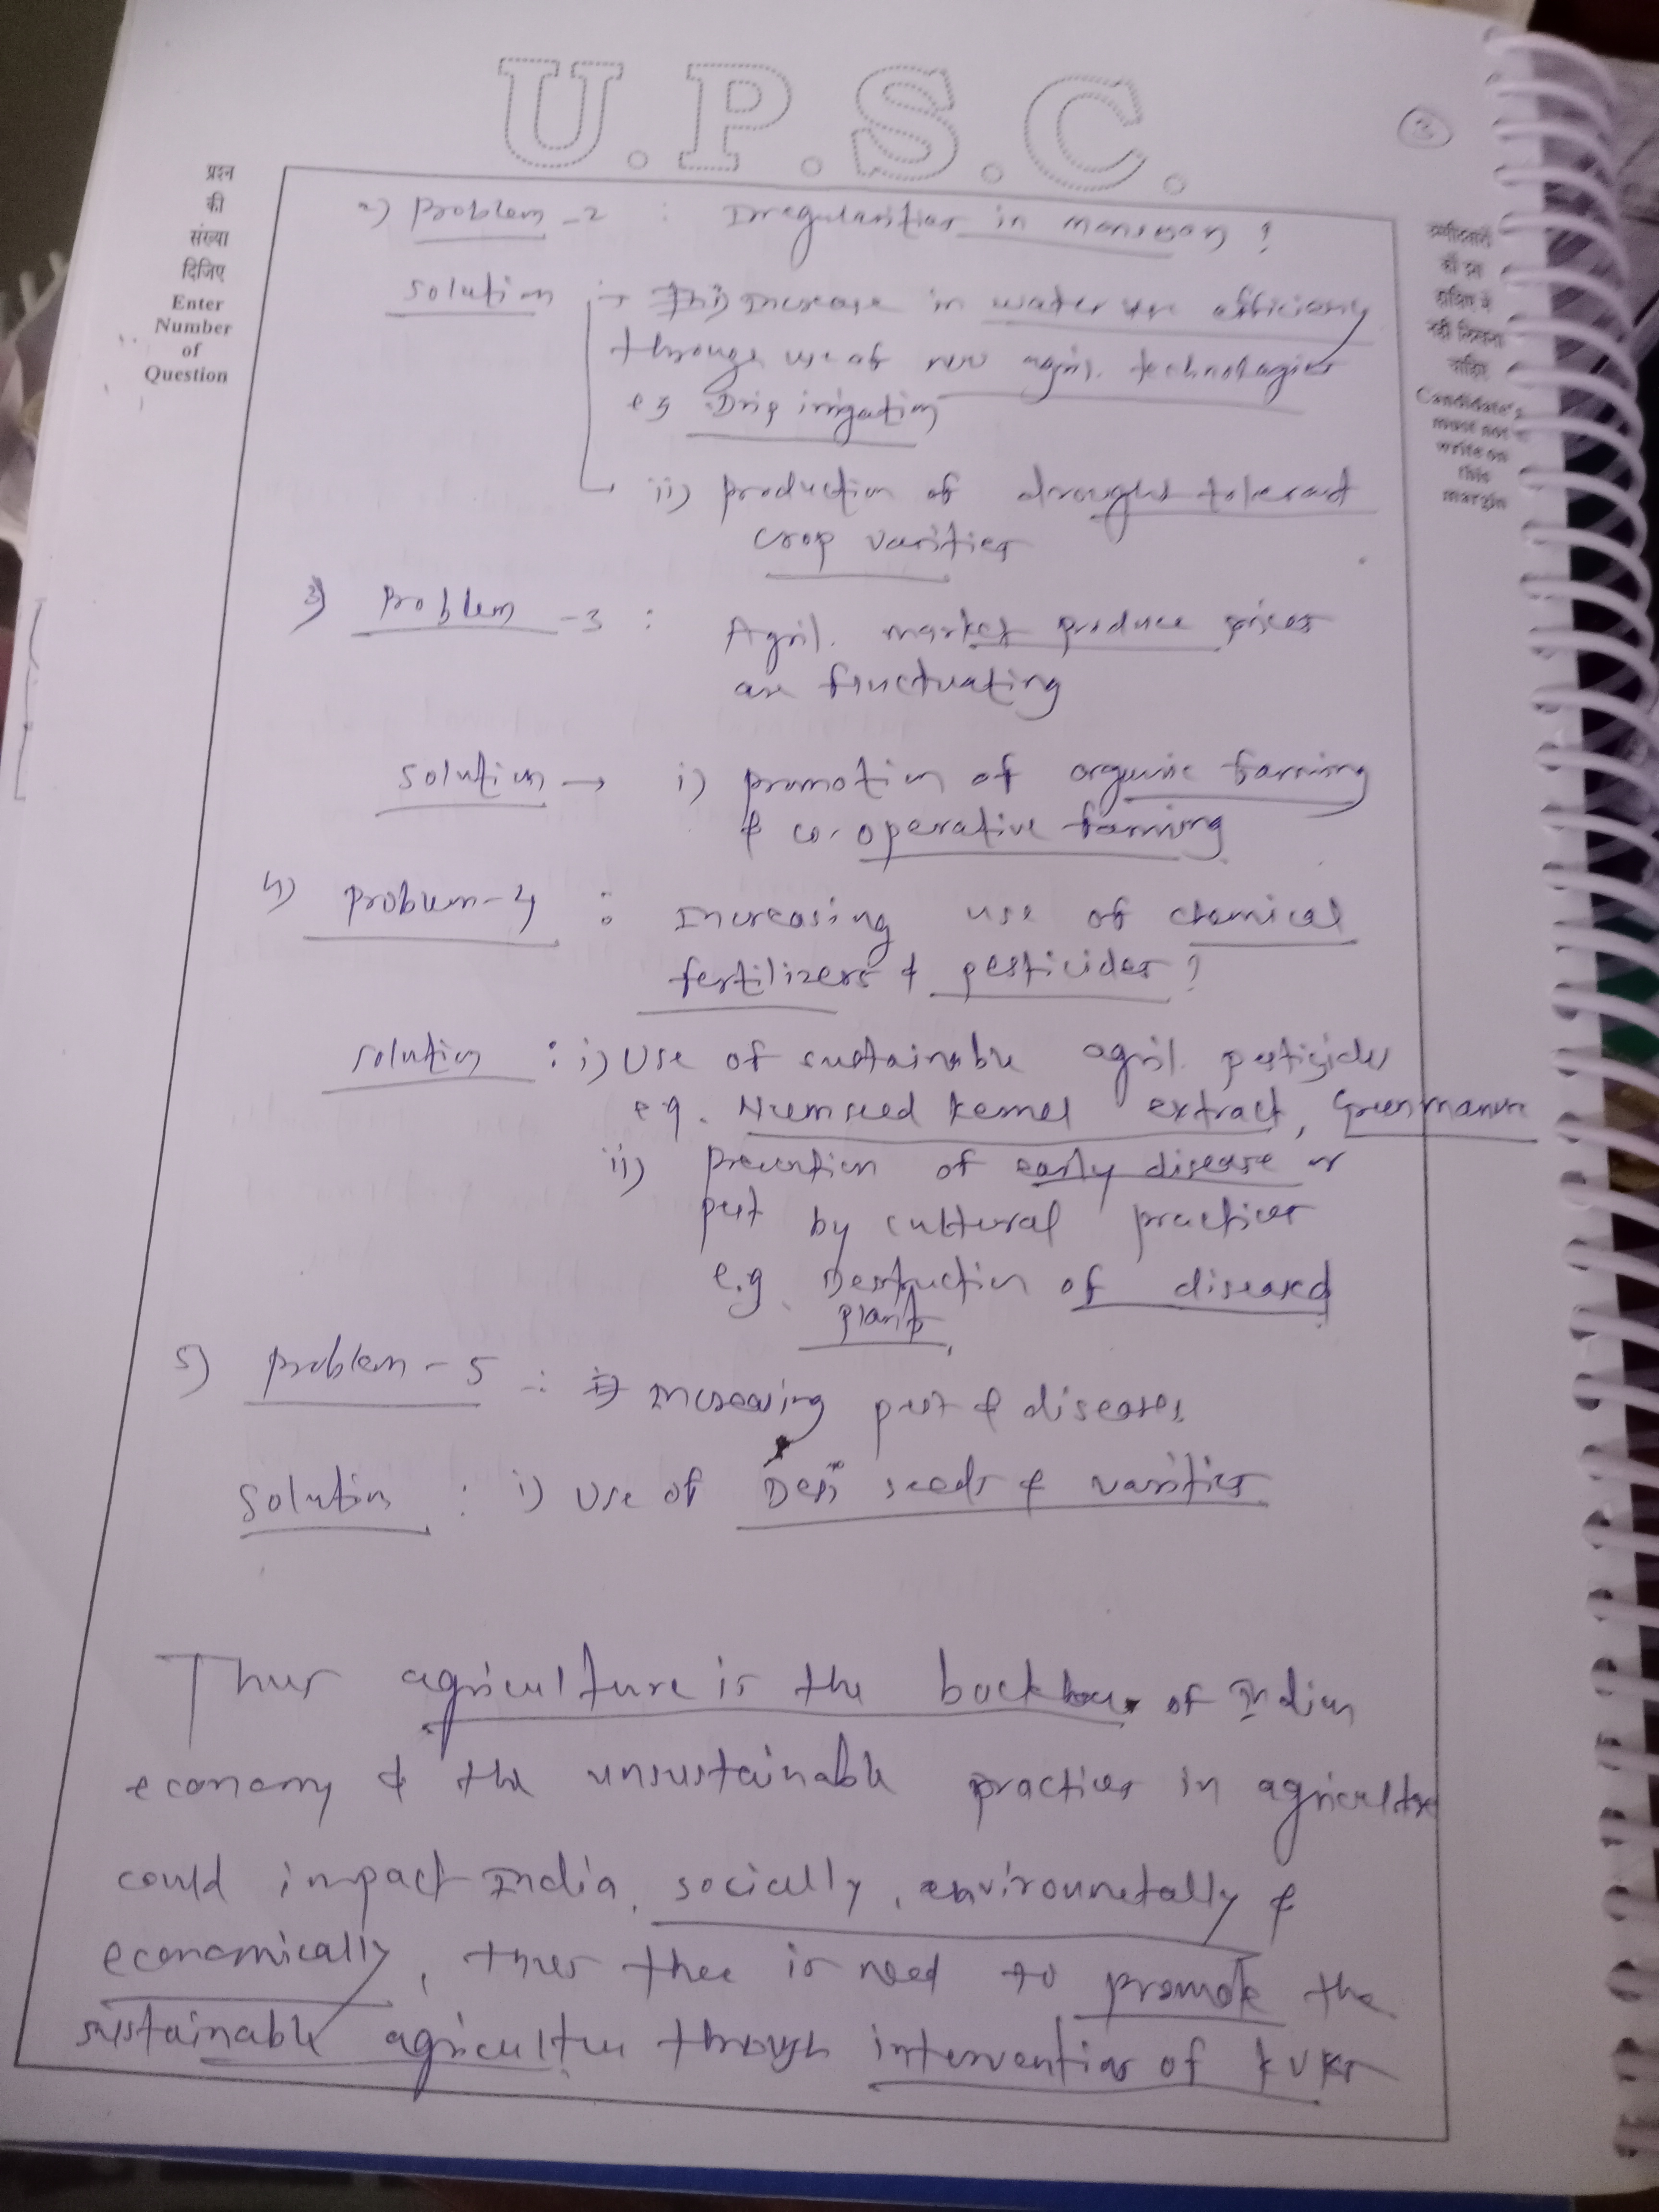 U.P.S.C.
3
प्रश्न
की
संख्या
दिजिए
Enter
Number
of
Question
उम्मीदवारों
को इस
हाशिए में
नहीं लिखना
चाहिए
Candidate's
must not
write on
this
margin
2) Problem-2 : Irregularities in monsoon ?
solution → i) Increase in water use efficiency
through use of new agril. technologies
eg Drip irrigation
ii) production of drought tolerant
crop varities
3) Problem-3 : Agril. market produce prices
are fluctuating
solution → i) promotion of organic farming
& co-operative farming
4) Problem-4 : Increasing use of chemical
fertilizers & pesticides ?
solution : i) Use of sustainable agril. pesticides
eg. Neem seed kernel extract, Green manure
ii) prevention of early disease or
pest by cultural practices
e.g. Destruction of diseased
plants.
5) Problem-5 : Increasing pest & diseases
Solution : i) Use of Desi seeds & varities
Thus agriculture is the backbone of Indian
economy & the unsustainable practices in agriculture
could impact India, socially, environmetally &
economically, thus thee is need to promote the
sustainable agricultue through intervention of KVKs